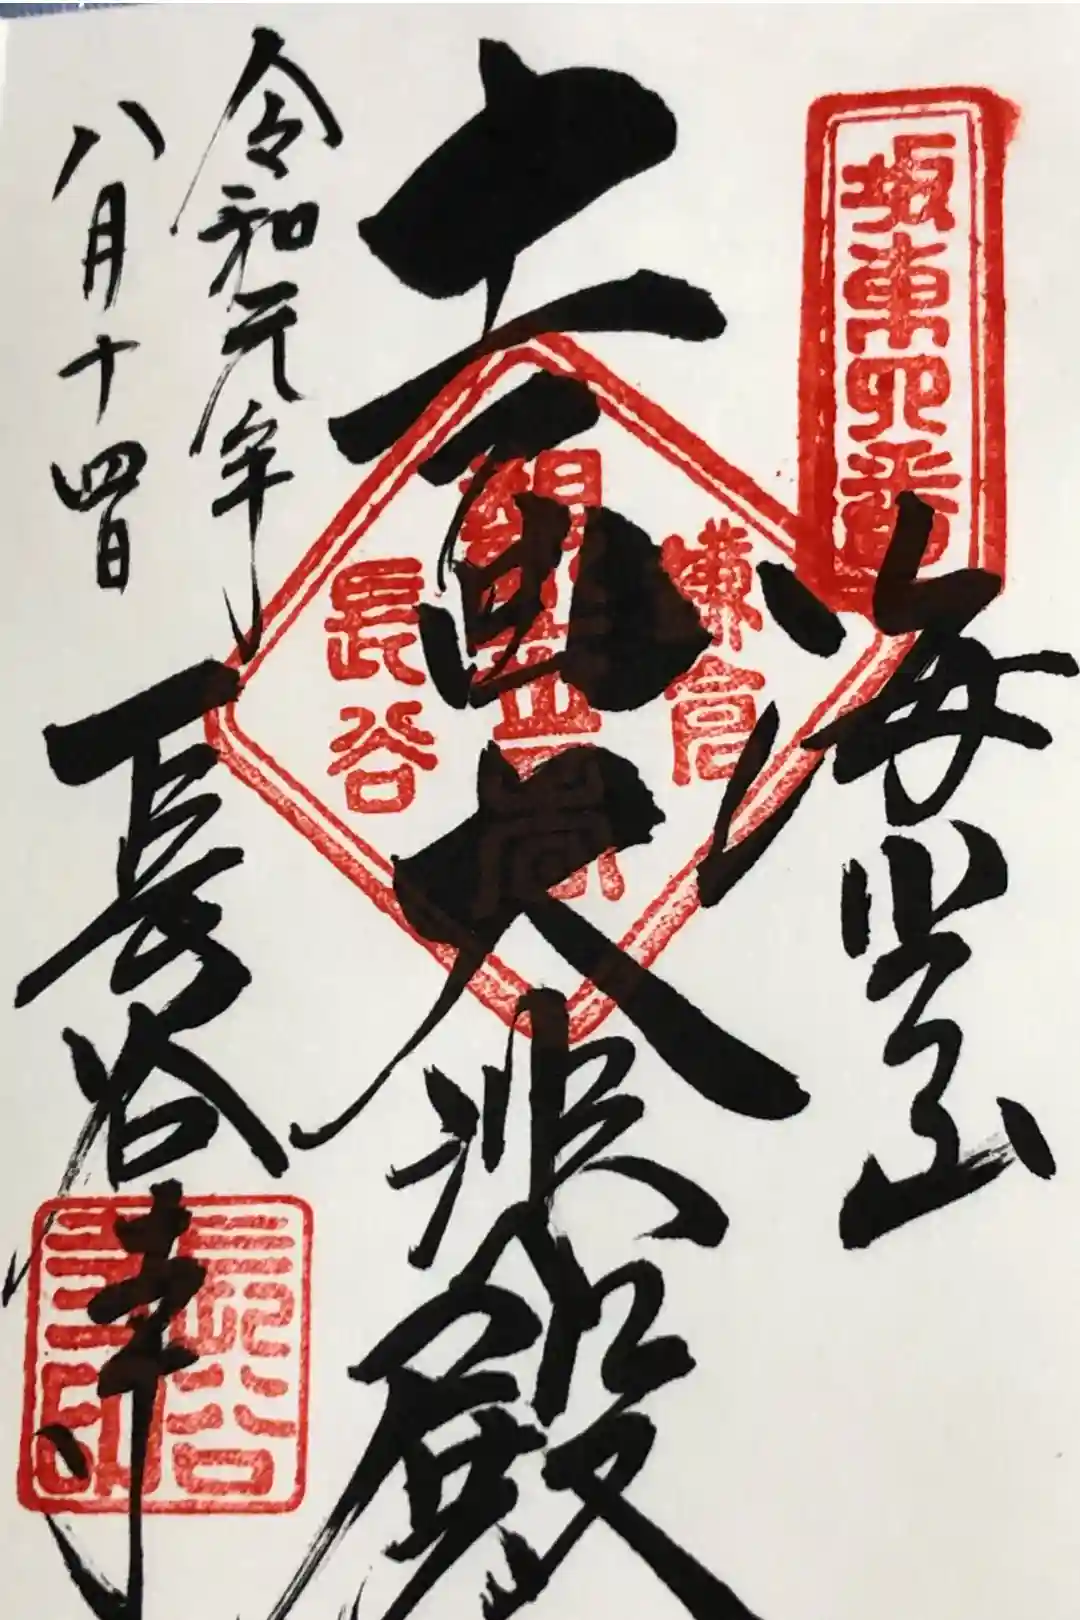 坂東四番
海光山
鎌倉
観世音
長谷
十一面大悲殿
令和元年
八月十四日
長谷寺
長谷寺印